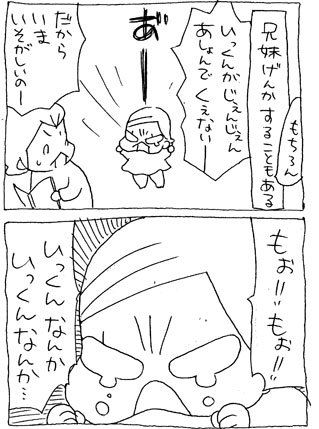 もちろん
兄妹げんかすることもある
いっくんがじぇんじぇん
あしょんでくえないー
あ゛ーーー
だから
いま
いそがしいのー
もぉ!!もぉ!!
いっくんなんか
いっくんなんか…